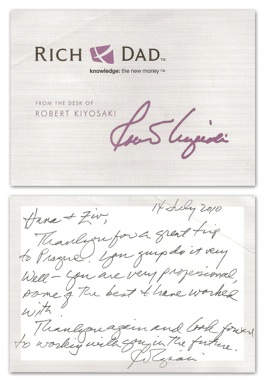 RICH DAD™
knowledge: the new money™
FROM THE DESK OF
ROBERT KIYOSAKI
14 July 2010
Hana & Ziv,
Thank you for a great trip
to Prague. You guys do it very
well – you are very professional,
some of the best I have worked
with.
Thank you again and look forward
to working with you in the future.